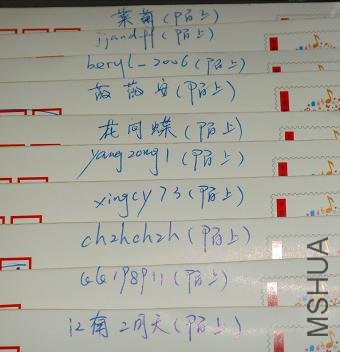 茉莉(陌上)
jjandff(陌上)
beryl_2006(陌上)
薇薇安(陌上)
花间蝶(陌上)
yangzong1(陌上)
xingcy73(陌上)
chzhchzh(陌上)
QQ198911(陌上)
江南二月天(陌上)
MSHUA